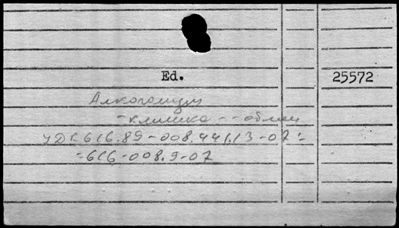 Ed. 25572
Алкоголизм
- клиника -- обмен
УДК 616.89-008.441.13-07:
:616-008.9-07